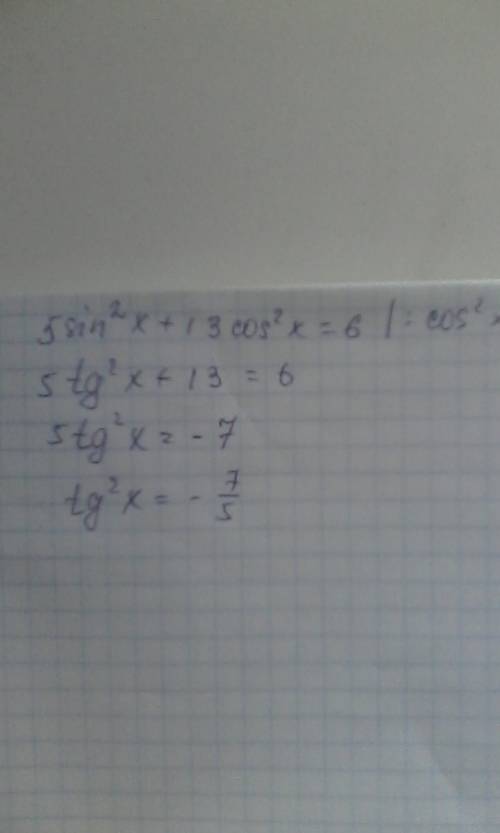 5 sin² x + 13 cos² x = 6 | : cos² x
5 tg² x + 13 = 6
5 tg² x = - 7
tg² x = - 7/5